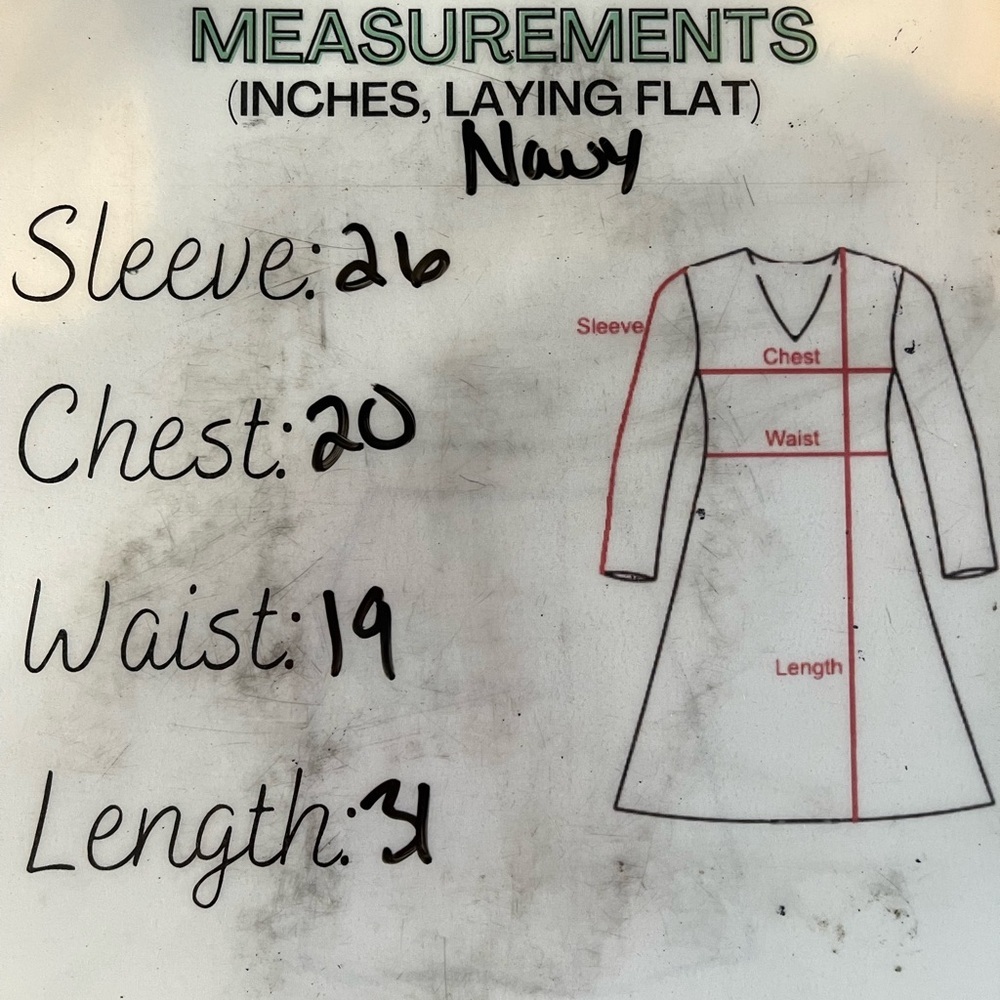 MEASUREMENTS
(INCHES, LAYING FLAT)
Navy
Sleeve: 26
Chest: 20
Waist: 19
Length: 31
Sleeve
Chest
Waist
Length